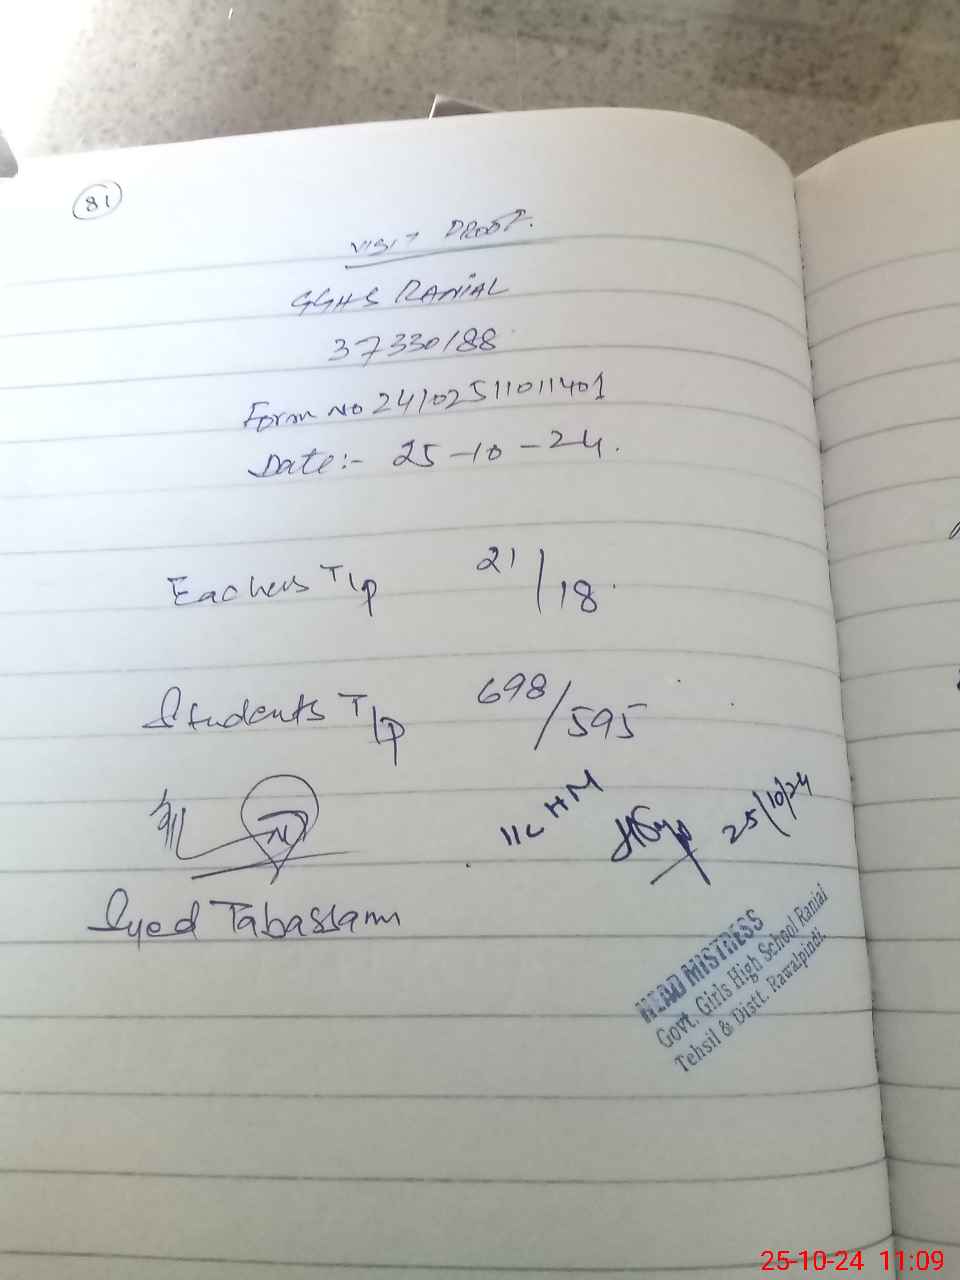 81
VISIT PROOF.
GGHS RANIAL
37330188
Form No 24102511011401
Date:- 25-10-24.
Eachers T/p 21/18
Students T/p 698/595
I/C HM 25/10/24
Syed Tabassam
HEAD MISTRESS
Govt. Girls High School Ranial
Tehsil & Distt. Rawalpindi.
25-10-24 11:09